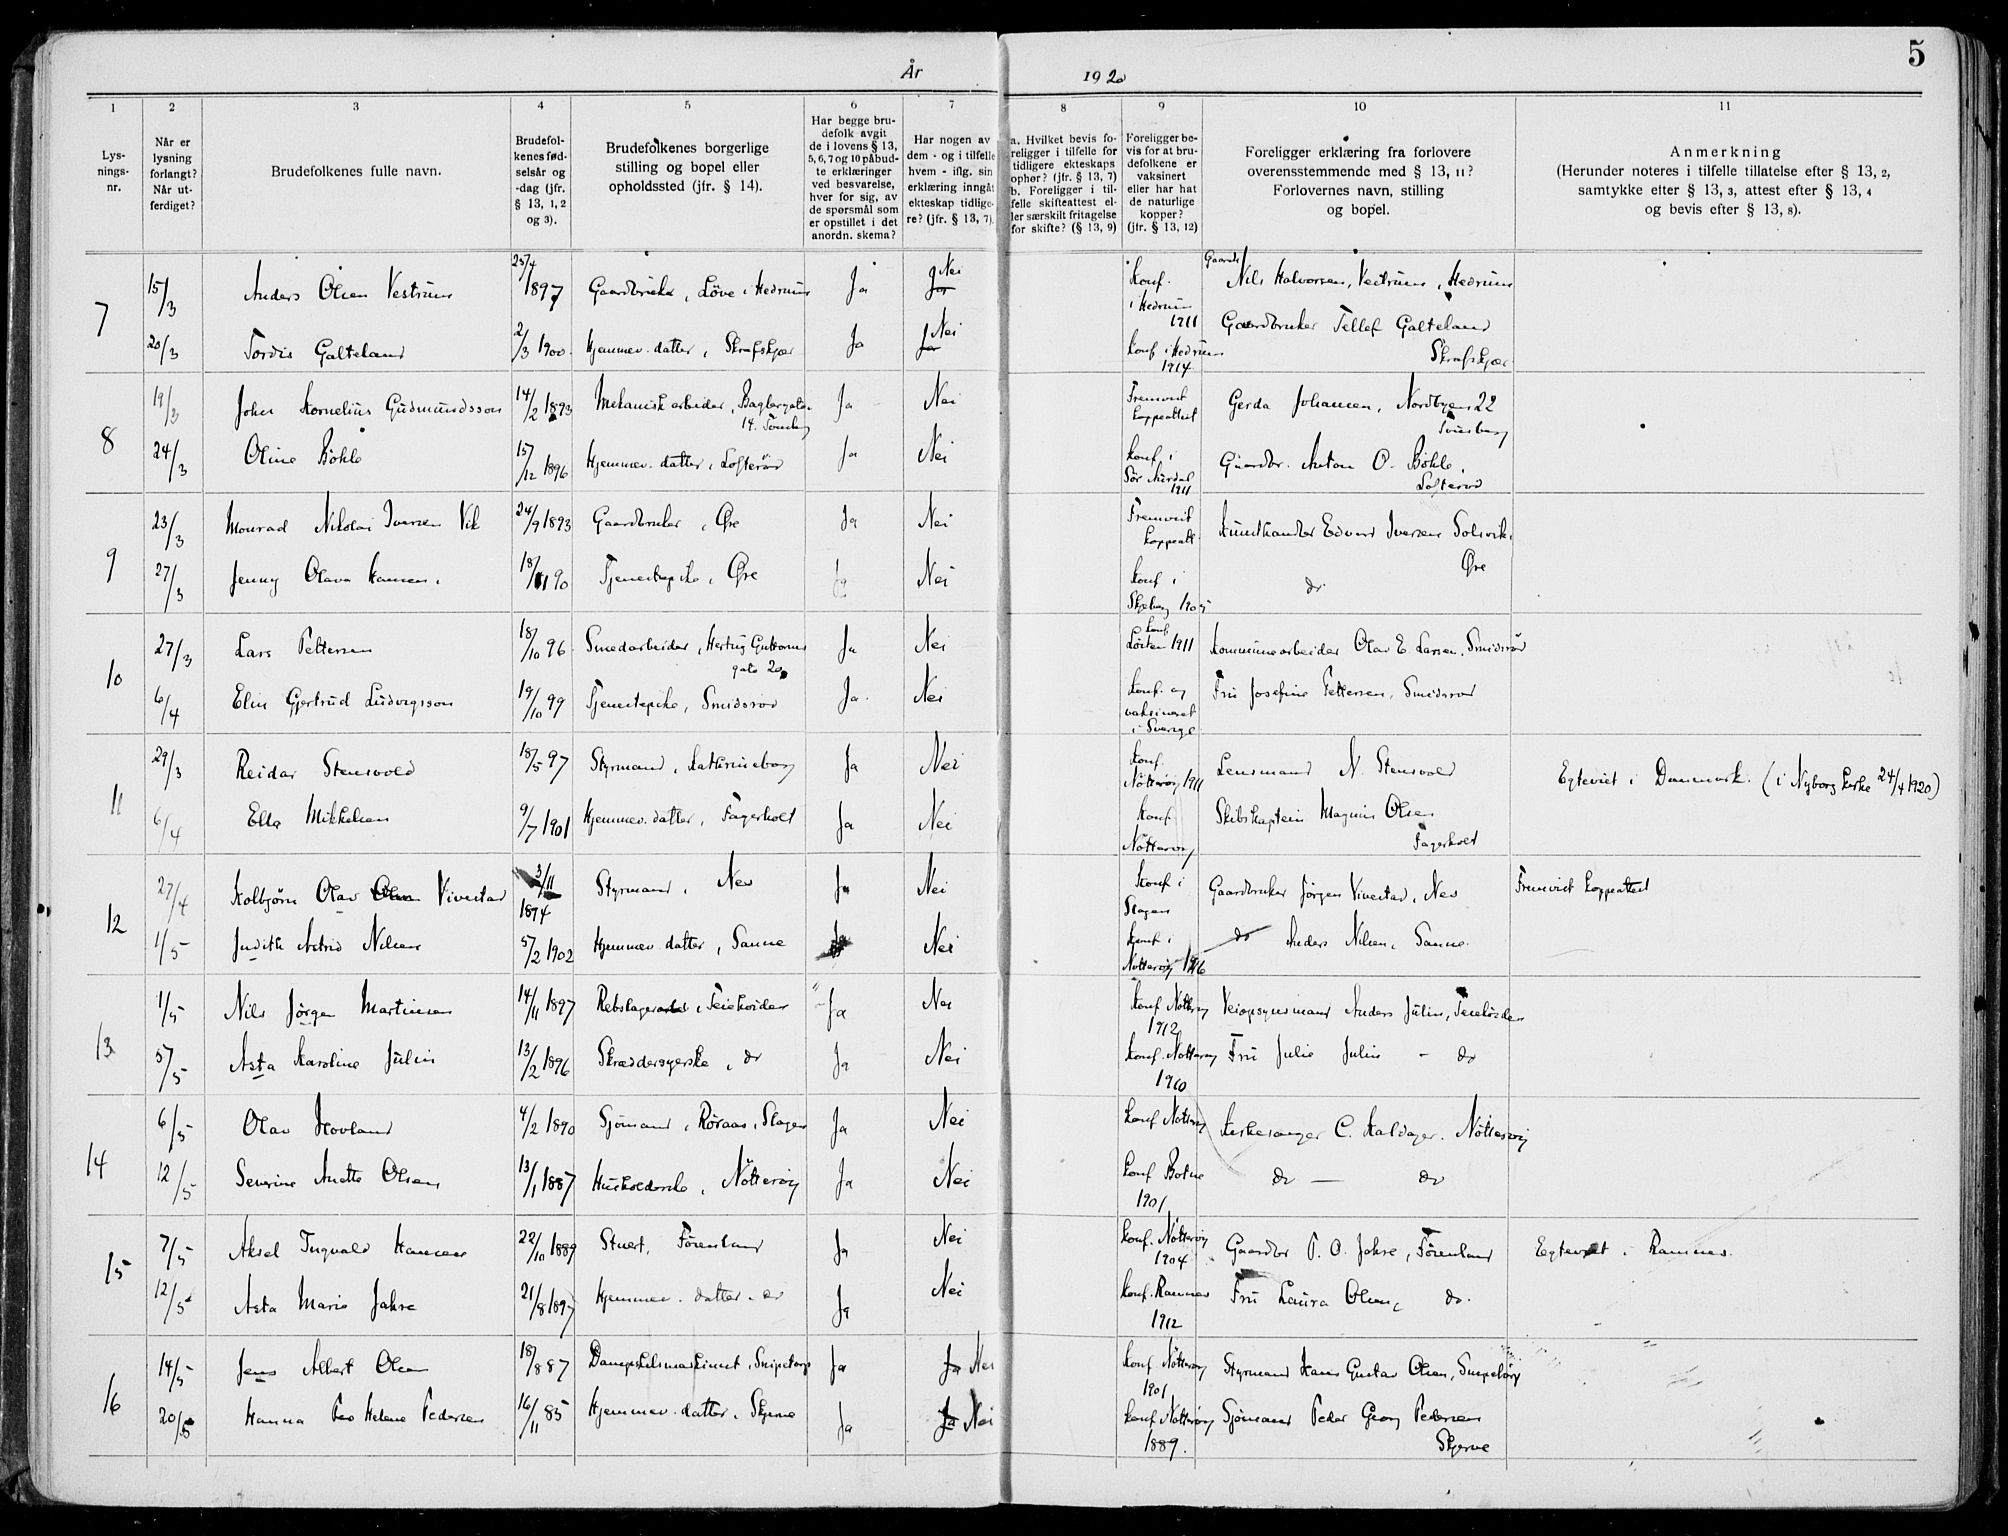 5
År 1920
1 2 3 4 5 6 7 8 9 10 11
Lys-
nings-
nr.
Når er
lysning
forlangt?
Når ut-
ferdiget?
Brudefolkenes fulle navn.
Brudefol-
kenes fød-
selsår og
-dag (jfr.
§ 13, 1, 2
og 3).
Brudefolkenes borgerlige
stilling og bopel eller
opholdssted (jfr. § 14).
Har begge bru-
defolk avgit
de i lovens § 13,
5, 6, 7 og 10 påbud-
te erklæringer
ved besvarelse,
hver for sig, av
de spørsmål som
er opstillet i det
anordn. skema?
Har nogen av
dem - og i tilfelle
hvem - iflg. sin
erklæring inngåt
ekteskap tidlige-
re? (jfr. § 13, 7).
a. Hvilket bevis fo-
religger i tilfelle for
tidligere ekteskaps
ophør? (jfr. § 13, 7)
b. Foreligger i til-
felle skifteattest el-
ler særskilt fritagelse
for skifte? (§ 13, 9)
Foreligger be-
vis for at bru-
defolkene er
vaksinert
eller har hat
de naturlige
kopper?
(jfr. § 13, 12)
Foreligger erklæring fra forlovere
overensstemmende med § 13, 11?
Forlovernes navn, stilling
og bopel.
Anmerkning
(Herunder noteres i tilfelle tillatelse efter § 13, 2,
samtykke efter § 13, 3, attest efter § 13, 4
og bevis efter § 13, 8).
7 15/3 Anders Olsen Vestrum 25/4 1897 Gaardbruker, Löve i Hedrum Ja Nei Konf. i Hedrum 1911 Gaardb Nils Halvorsen, Vestrum, Hedrum
20/3 Tordis Galteland 2/3 1900 Hjemmev. datter, Skrafskjær Ja Nei Konf i Hedrum 1914 Gaardbruker Tellef Galteland Skrafskjær
8 19/3 John Kornelius Gudmundsson 14/2 1893 Mekanisk arbeider, Baglergaten 14. Tönsberg Ja Nei Fremvist koppeattest Gerda Johansen, Nordbyen 22 Tönsberg
24/3 Oline Böhle 15/12 1896 Hjemmev. datter, Lofteröd Ja Nei Konf. i Sör Aurdal 1911 Gaardbr. Anton O. Böhle, Lofteröd
9 23/3 Monrad Nikolai Iversen Vik 24/9 1893 Gaardbruker, Öre Ja Nei Fremvist koppeatt. Kunsthandler Edvard Iversen Solvik, Öre
27/3 Jenny Olava Hansen. 18/11 90 Tjenestepike, Öre Ja Nei Konf i Skjeberg 1905 do
10 27/3 Lars Pettersen 18/10 96 Smedarbeider, Hertug Guttorms gate 20 Ja Nei Konf Löiten 1911 Kommunearbeider Olav E. Larsen, Smidsröd
6/4 Elin Gjertrud Ludvigsson 19/10 99 Tjenestepike, Smidsröd Ja Nei Konf. og vaksineret i Sverige Fru Josefine Pettersen, Smidsröd
11 29/3 Reidar Stensvold 18/5 97 Styrmand, Kathrineborg Ja Nei Konf. Nötteröy 1911 Lensmand N. Stensvold Egteviet i Danmark. (i Nyborg kirke 24/4 1920)
6/4 Ella Mikkelsen 9/7 1901 Hjemmev. datter, Fagerholt Ja Nei Konf. Nötteröy Skibskaptein Magnus Olsen Fagerholt
12 27/4 Kolbjörn Olav Olsen Vivestad 3/11 1894 Styrmand, Nes Ja Nei Konf i Slagen Gaardbruker Jörgen Vivestad, Nes Fremvist koppeattest
1/5 Judith Astrid Nilsen 5/2 1902 Hjemmev. datter, Sanne Ja Nei Konf i Nötteröy 1916 do Anders Nilsen, Sanne.
13 1/5 Nils Jörgen Martinsen 14/11 1897 Rebslagerarbei, Teiehöiden Ja Nei Konf Nötteröy 1912 Veiopsynsmand Anders Julin, Teiehöiden
5/5 Asta Karoline Julin 13/2 1896 Skræddersyerske, do Ja Nei Konf. Nötteröy 1910 Fru Julie Julin - do
14 6/5 Olav Hovland 4/2 1890 Sjömand, Röraas, Slagen Ja Nei Konf Nötteröy Kirkesanger C. Kaldager. Nötteröy
12/5 Severine Anette Olsen 13/1 1887 Husholderske, Nötteröy Ja Nei Konf Botne 1901 do — do
15 7/5 Aksel Ingvald Hansen 22/10 1889 Stuert, Förenland Ja Nei Konf. Nötteröy 1904 Gaardbr P. O. Jahre, Förenland Egteviet i Ramnes.
12/5 Asta Marie Jahre 21/8 1897 Hjemmev. datter. do Ja Nei Konf. Ramnes 1912 Fru Laura Olsen, do.
16 14/5 Jens Albert Olsen 18/8 87 Dampskibsmaskinist, Snipetorp Ja Ja Nei Konf. Nötteröy 1901 Styrmand Hans Gustav Olsen, Snipetorp
20/5 Hanna Thea Helene Pedersen 16/11 85 Hjemmev. datter, Skjerve Ja Ja Nei Konf Nötteröy 1889. Sjömand Peder Georg Pedersen Skjerve